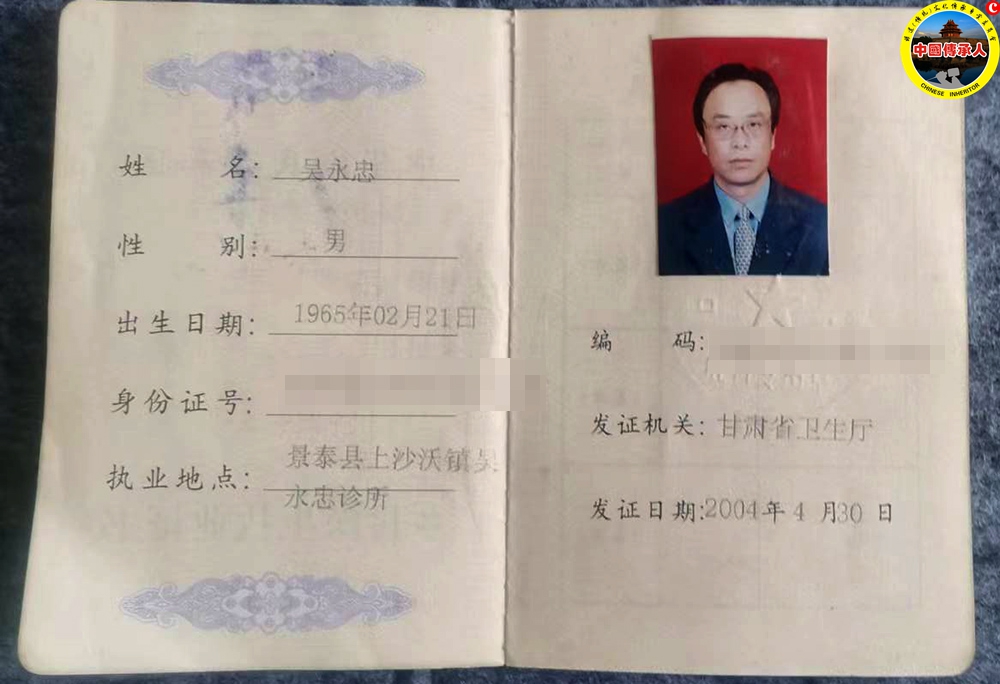 姓名：吴永忠
性别：男
出生日期：1965年02月21日
身份证号：
执业地点：景泰县上沙沃镇吴
永忠诊所
编码：
发证机关：甘肃省卫生厅
发证日期：2004年4月30日
中國傳承人
CHINESE INHERITOR
C